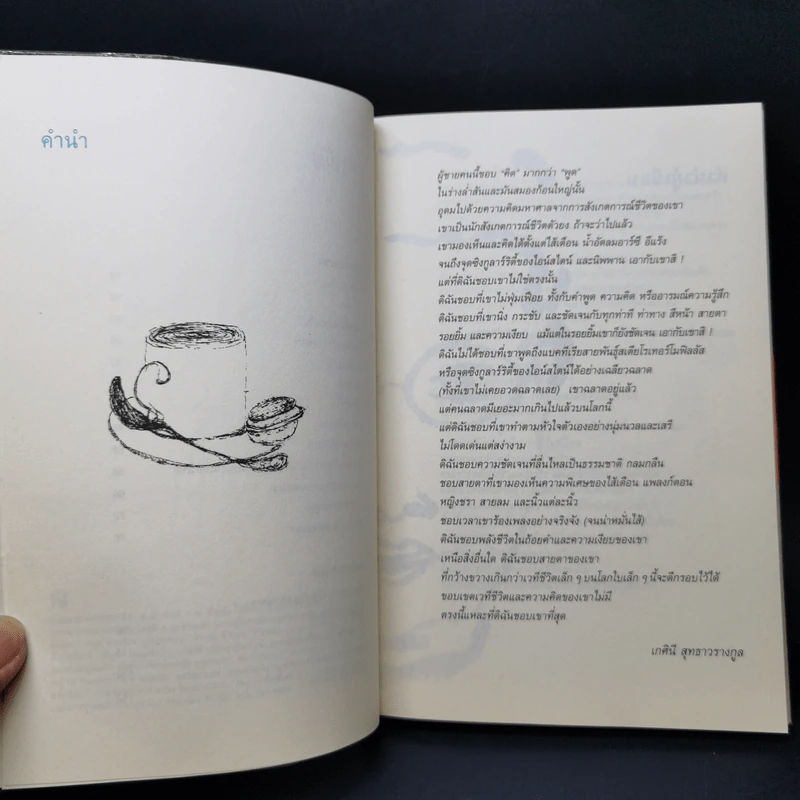 คำนำ
ผู้ชายคนนี้ชอบ "คิด" มากกว่า "พูด"
ในร่างล่ำสันและมันสมองก้อนใหญ่นั้น
อุดมไปด้วยความคิดมหาศาลจากการสังเกตการณ์ชีวิตของเขา
เขาเป็นนักสังเกตการณ์ชีวิตตัวยง ถ้าจะว่าไปแล้ว
เขามองเห็นและคิดได้ตั้งแต่ไส้เดือน น้ำอัดลมอาร์ซี อีแร้ง
จนถึงจุดซิงกูลาร์ริตี้ของไอน์สไตน์ และนิพพาน เอากับเขาสิ !
แต่ที่ดิฉันชอบเขาไม่ใช่ตรงนั้น
ดิฉันชอบที่เขาไม่ฟุ่มเฟือย ทั้งกับคำพูด ความคิด หรืออารมณ์ความรู้สึก
ดิฉันชอบที่เขานิ่ง กระชับ และชัดเจนกับทุกท่าที ท่าทาง สีหน้า สายตา
รอยยิ้ม และความเงียบ แม้แต่ในรอยยิ้มเขาก็ยังชัดเจน เอากับเขาสิ !
ดิฉันไม่ได้ชอบที่เขาพูดถึงแบคทีเรียสายพันธุ์สเตียโรเทอร์โมฟิลลัส
หรือจุดซิงกูลาร์ริตี้ของไอน์สไตน์ได้อย่างเฉลียวฉลาด
(ทั้งที่เขาไม่เคยอวดฉลาดเลย) เขาฉลาดอยู่แล้ว
แต่คนฉลาดมีเยอะมากเกินไปแล้วบนโลกนี้
แต่ดิฉันชอบที่เขาทำตามหัวใจตัวเองอย่างนุ่มนวลและเสรี
ไม่โดดเด่นแต่สง่างาม
ดิฉันชอบความชัดเจนที่ลื่นไหลเป็นธรรมชาติ กลมกลืน
ชอบสายตาที่เขามองเห็นความพิเศษของไส้เดือน แพลงก์ตอน
หญิงชรา สายลม และนิ้วแต่ละนิ้ว
ชอบเวลาเขาร้องเพลงอย่างจริงจัง (จนน่าหมั่นไส้)
ดิฉันชอบพลังชีวิตในถ้อยคำและความเงียบของเขา
เหนือสิ่งอื่นใด ดิฉันชอบสายตาของเขา
ที่กว้างขวางเกินกว่าเวทีชีวิตเล็ก ๆ บนโลกใบเล็ก ๆ นี้จะตีกรอบไว้ได้
ขอบเขตเวทีชีวิตและความคิดของเขาไม่มี
ตรงนี้แหละที่ดิฉันชอบเขาที่สุด
เกศินี สุทธาวรางกูล